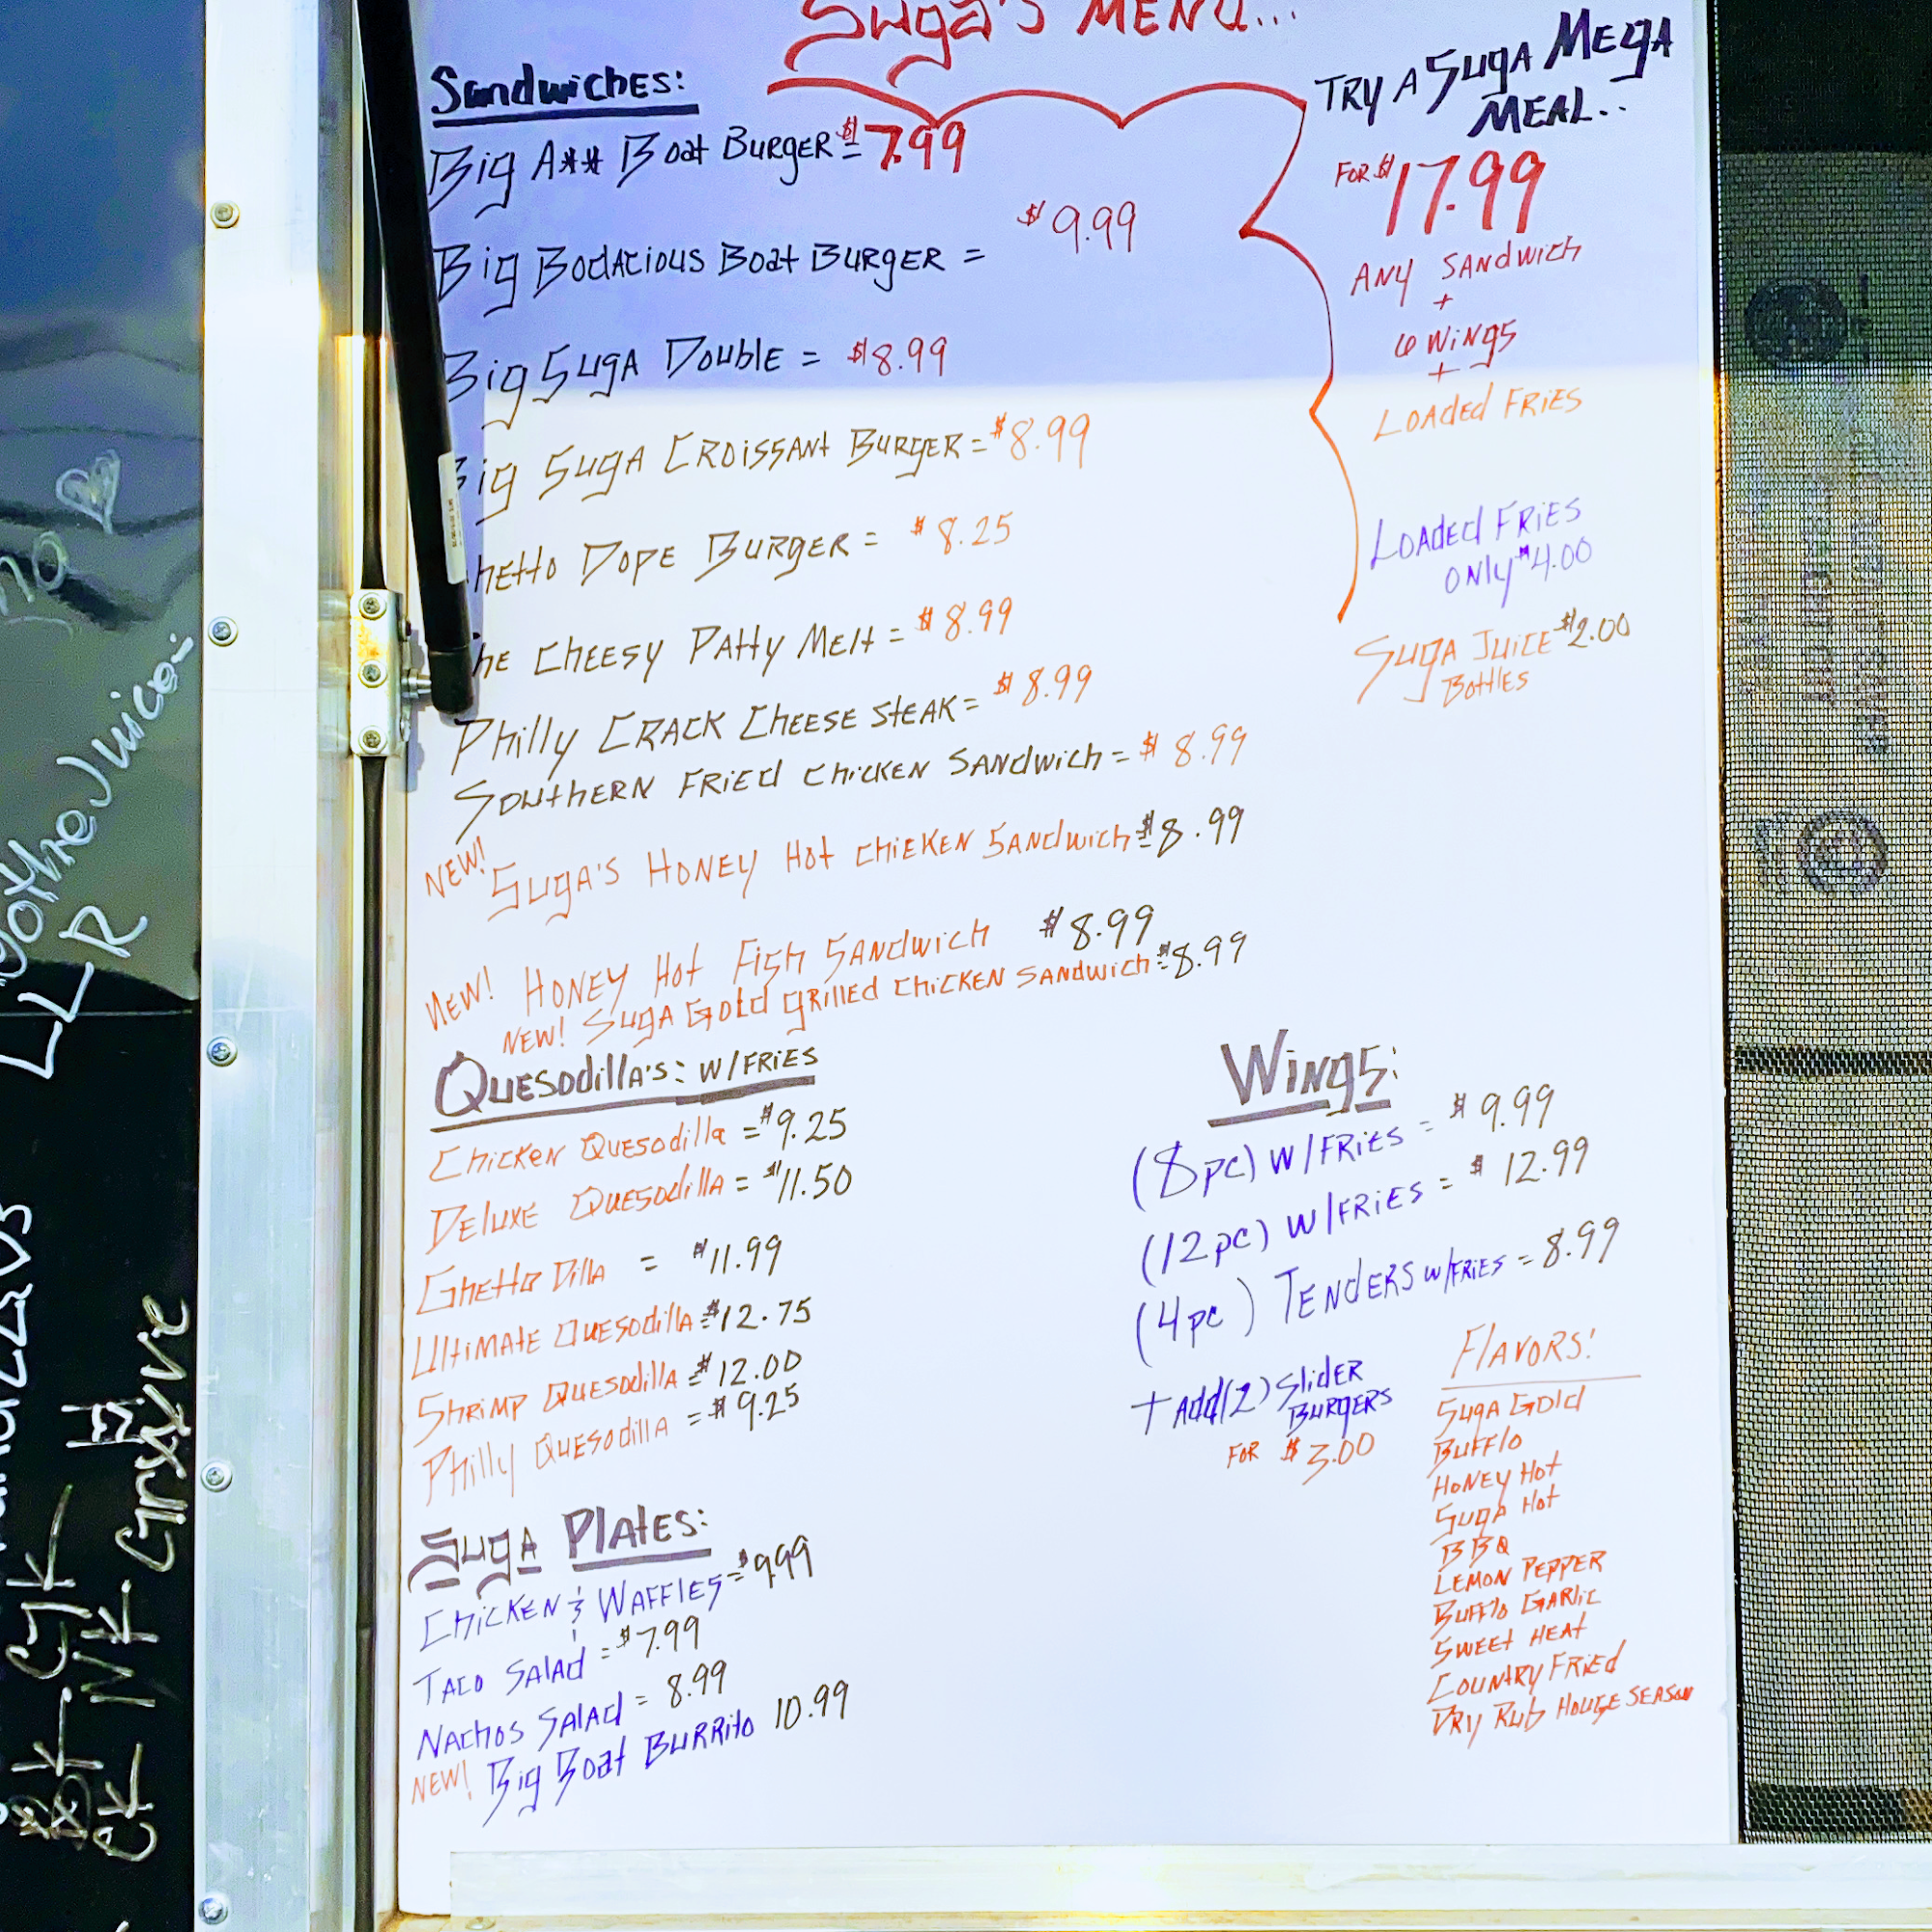 Suga's MENU...
Sandwiches:
Big A** Boat Burger = $7.99
Big Bodacious Boat Burger =
$9.99
Big Suga Double = $8.99
Big Suga Croissant Burger = $8.99
hetto Dope Burger = $8.25
he Cheesy Patty Melt = $8.99
Philly Crack Cheese Steak = $8.99
Southern Fried Chicken Sandwich = $8.99
NEW! Suga's Honey Hot Chicken Sandwich = $8.99
NEW! Honey Hot Fish Sandwich $8.99
NEW! Suga Gold Grilled Chicken Sandwich = $8.99
Quesodilla's: w/Fries
Chicken Quesodilla = $9.25
Deluxe Quesodilla = $11.50
Ghetto Dilla = $11.99
Ultimate Quesodilla = $12.75
Shrimp Quesodilla = $12.00
Philly Quesodilla = $9.25
Suga Plates:
Chicken & Waffles = $9.99
Taco Salad = $7.99
Nachos Salad = 8.99
NEW! Big Boat Burrito 10.99
TRY A Suga Mega
Meal..
For $17.99
Any Sandwich
+
6 Wings
+
Loaded Fries
Loaded Fries
only $4.00
Suga Juice $2.00
Bottles
Wings:
(8pc) w/Fries = $9.99
(12pc) w/Fries = $12.99
(4pc) Tenders w/Fries = 8.99
+ Add (2) Slider
Burgers
For $3.00
Flavors!
Suga Gold
Bufflo
Honey Hot
Suga Hot
BBQ
Lemon Pepper
Bufflo Garlic
Sweet Heat
Country Fried
Dry Rub House Season
theJuice
LLR